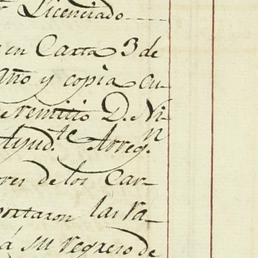 Licenciado
en Carta 3 de
año y copia cu-
remitio D. Vi-
Ayud.te Arreg.n
res de los Car-
portaron las va-
á su regreso de